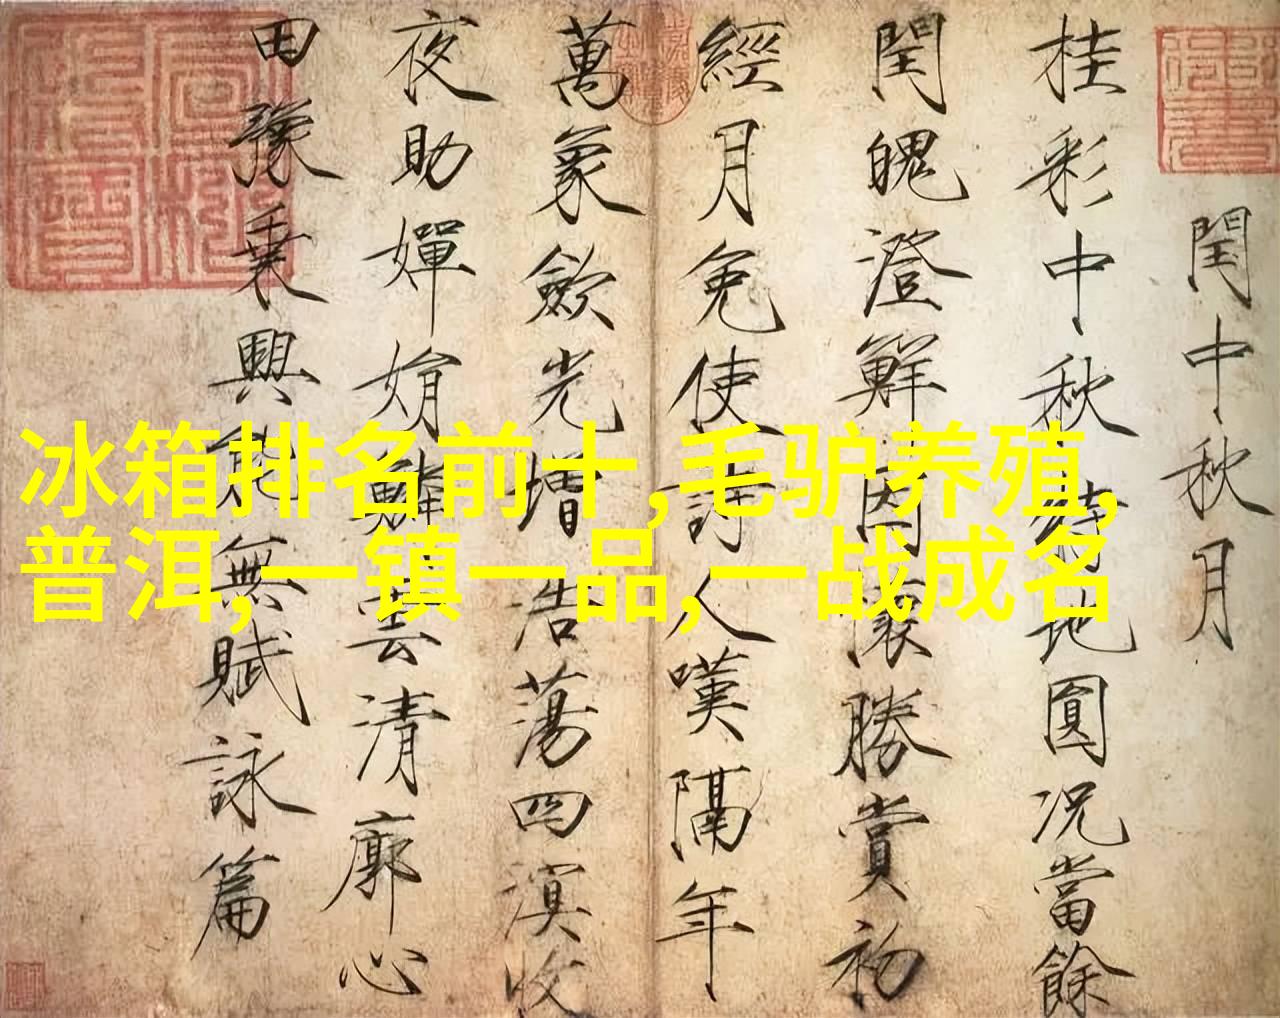 閏中秋月
桂彩中秋特地圓況當餘
閏魄澄鮮因懷勝賞初
經月免使詩人嘆隔年
萬象斂光增浩蕩四溟收
夜助嬋娟鱗雲清廓心
田豫乗興能無賦詠篇
冰箱排名前十,毛驴养殖,
普洱,一镇一品,一战成名